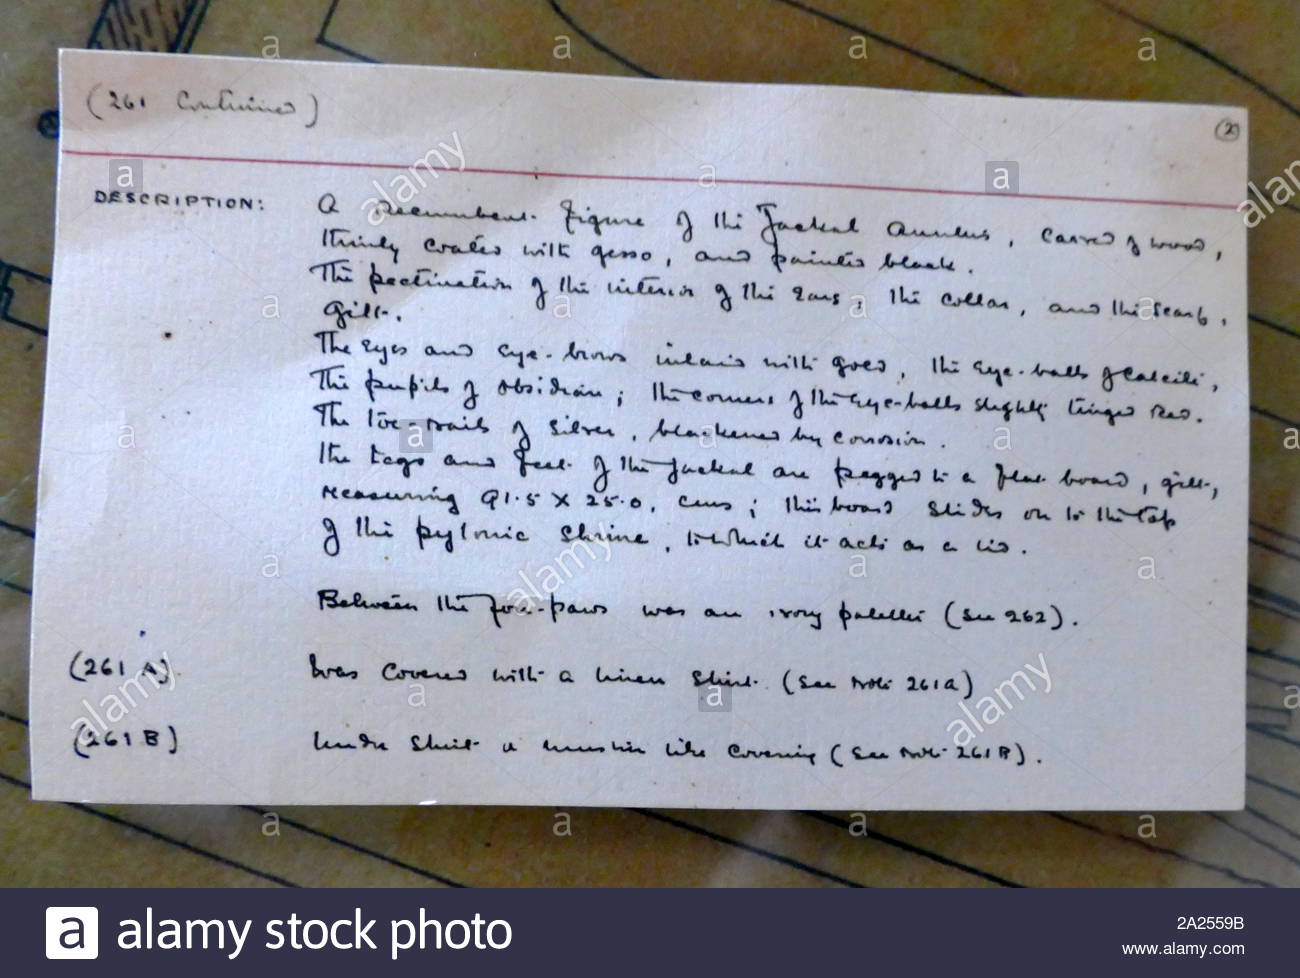 (261 Continued)
(2)
DESCRIPTION: A recumbent figure of the Jackal Anubis, carved of wood,
thinly coated with gesso, and painted black.
The pectination of the interior of the ears, the collar, and the scarf,
gilt.
The eyes and eye-brows inlaid with gold, the eye-balls of calcite,
the pupils of obsidian; the corners of the eye-balls slightly tinged red.
The toe-nails of silver, blackened by corrosion.
The legs and feet of the jackal are pegged to a flat board, gilt,
measuring 91.5 X 25.0. cms; this board slides on to the top
of the pylonic shrine, to which it acts as a lid.
Between the fore-paws was an ivory palette (see 262).
(261 A) Was covered with a linen shirt (see note 261A)
(261 B) Under shirt a muslin like covering (see note 261B).
alamy
alamy stock photo
2A2559B
www.alamy.com